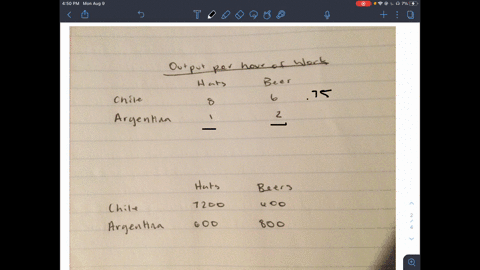 4:50 PM Mon Aug 9
7%
Output per hour of work
Hats Beer
Chile 8 6 .75
Argentina 1 2
Hats Beers
Chile 7200 400
Argentina 600 800